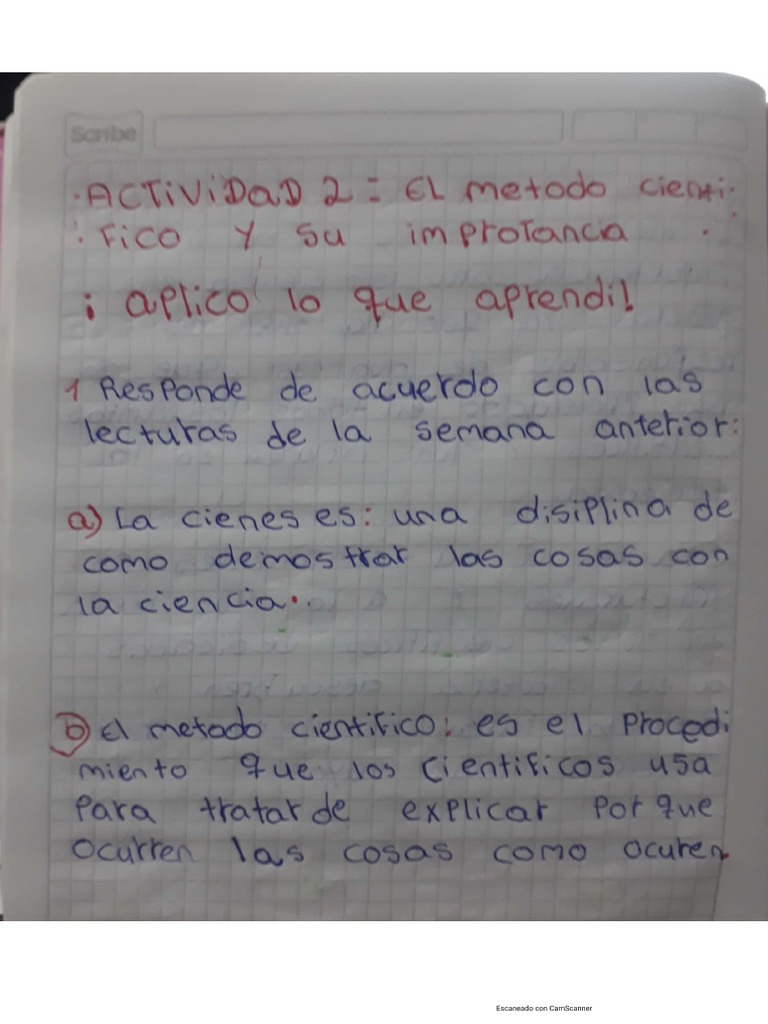 Scribe
·ACTiViDaD 2 = EL metodo cienti·
: Fico y su improtancia ·
¡ aplico lo que aprendi!
1 Responde de acuerdo con las
lecturas de la semana anterior:
a) La cienes es: una disiplina de
como demostrar las cosas con
la ciencia.
b) el metodo cientifico: es el Procedi
miento que los cientificos usa
para tratar de explicar por que
ocurren las cosas como ocuren
Escaneado con CamScanner